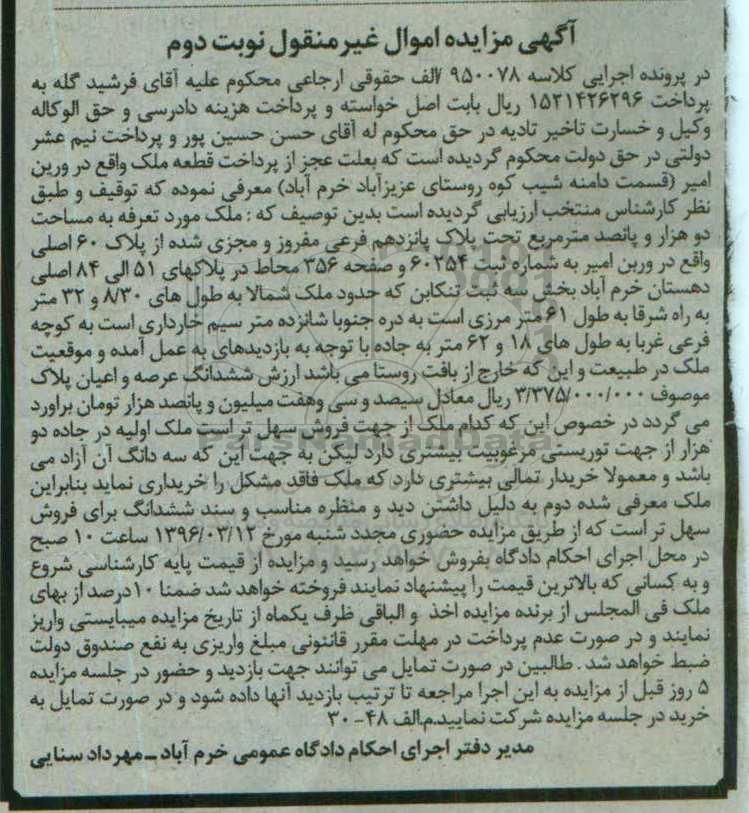 آگهی مزایده اموال غیرمنقول نوبت دوم
در پرونده اجرایی کلاسه ۹۵۰۰۷۸ /الف حقوقی ارجاعی محکوم علیه آقای فرشید گله به
پرداخت ۱۵۲۱۴۲۶۲۹۶ ریال بابت اصل خواسته و پرداخت هزینه دادرسی و حق الوکاله
وکیل و خسارت تاخیر تادیه در حق محکوم له آقای حسن حسین پور و پرداخت نیم عشر
دولتی در حق دولت محکوم گردیده است که بعلت عجز از پرداخت قطعه ملک واقع در ورین
امیر (قسمت دامنه شیب کوه روستای عزیزآباد خرم آباد) معرفی نموده که توقیف و طبق
نظر کارشناس منتخب ارزیابی گردیده است بدین توصیف که : ملک مورد تعرفه به مساحت
دو هزار و پانصد مترمربع تحت پلاک پانزدهم فرعی مفروز و مجزی شده از پلاک ۶۰ اصلی
واقع در ورین امیر به شماره ثبت ۶۰۲۵۴ و صفحه ۳۵۶ محاط در پلاکهای ۵۱ الی ۸۴ اصلی
دهستان خرم آباد بخش سه ثبت تنکابن که حدود ملک شمالا به طول های ۸/۳۰ و ۳۲ متر
به راه شرقا به طول ۶۱ متر مرزی است به دره جنوبا شانزده متر سیم خارداری است به کوچه
فرعی غربا به طول های ۱۸ و ۶۲ متر به جاده با توجه به بازدیدهای به عمل آمده و موقعیت
ملک در طبیعت و این که خارج از بافت روستا می باشد ارزش ششدانگ عرصه و اعیان پلاک
موصوف ۳/۳۷۵/۰۰۰/۰۰۰ ریال معادل سیصد و سی وهفت میلیون و پانصد هزار تومان براورد
می گردد در خصوص این که کدام ملک از جهت فروش سهل تر است ملک اولیه در جاده دو
هزار از جهت توریستی مرغوبیت بیشتری دارد لیکن به جهت این که سه دانگ آن آزاد می
باشد و معمولا خریدار تمالی بیشتری دارد که ملک فاقد مشکل را خریداری نماید بنابراین
ملک معرفی شده دوم به دلیل داشتن دید و منظره مناسب و سند ششدانگ برای فروش
سهل تر است که از طریق مزایده حضوری مجدد شنبه مورخ ۱۳۹۶/۰۳/۱۳ ساعت ۱۰ صبح
در محل اجرای احکام دادگاه بفروش خواهد رسید و مزایده از قیمت پایه کارشناسی شروع
و به کسانی که بالاترین قیمت را پیشنهاد نمایند فروخته خواهد شد ضمنا ۱۰درصد از بهای
ملک فی المجلس از برنده مزایده اخذ و الباقی ظرف یکماه از تاریخ مزایده میبایستی واریز
نمایند و در صورت عدم پرداخت در مهلت مقرر قانونی مبلغ واریزی به نفع صندوق دولت
ضبط خواهد شد . طالبین در صورت تمایل می توانند جهت بازدید و حضور در جلسه مزایده
۵ روز قبل از مزایده به این اجرا مراجعه تا ترتیب بازدید آنها داده شود و در صورت تمایل به
خرید در جلسه مزایده شرکت نمایید.م.الف ۴۸-۳۰
مدیر دفتر اجرای احکام دادگاه عمومی خرم آباد – مهرداد سنایی
ParsNamadData